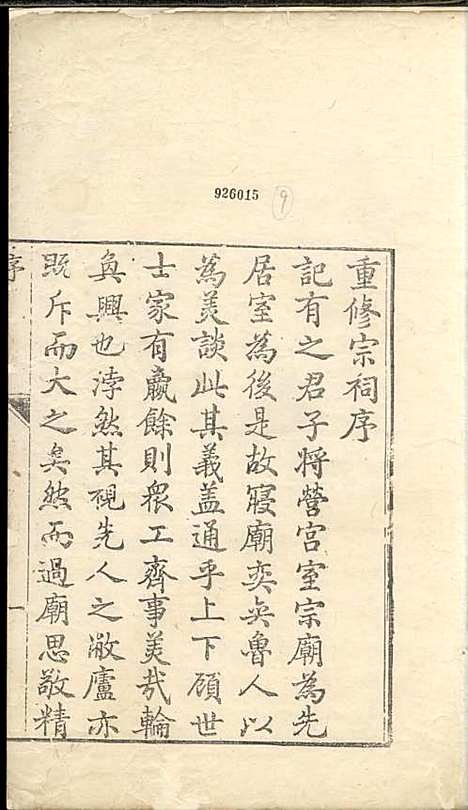 926015
9
重修宗祠序
記有之君子將營宮室宗廟為先
居室為後是故寢廟奕奕魯人以
為美談此其義盖通乎上下頋世
士家有羸餘則衆工齊事美哉輪
奐興也浡然其視先人之敝廬亦
既斥而大之矣然而過廟思敬精
序
一